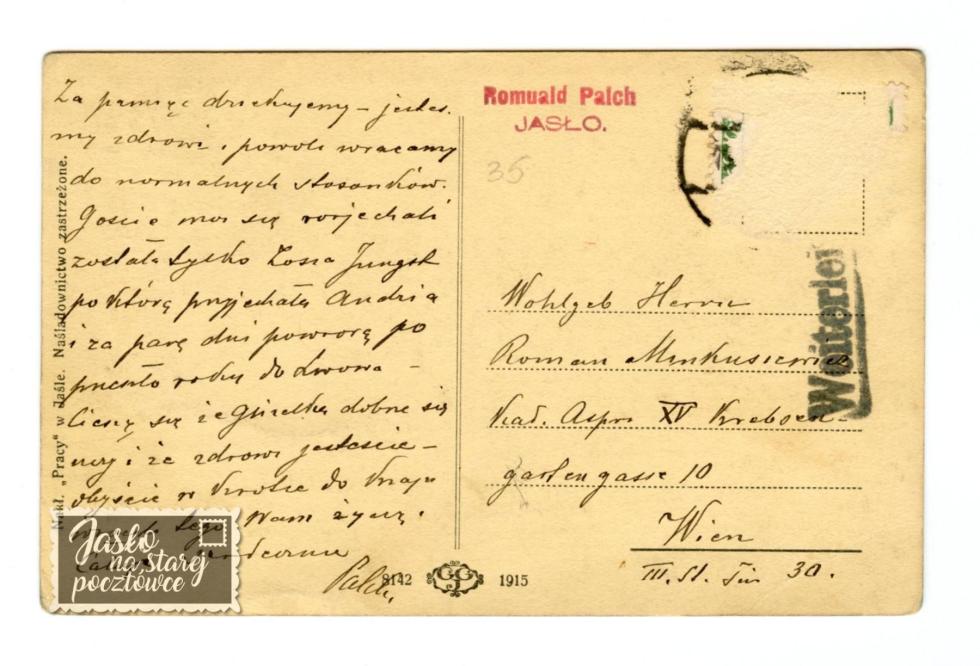 Za pamięć dziękujemy – jesteś-
my zdrowi i powoli wracamy
do normalnych stosunków.
Goście moi się rozjechali
została tylko Zosia Jungst
po którą przyjechała Andzia
i za parę dni powrócą po
przeszło roku do Lwowa –
Cieszę się że Gizelka dobrze się
uczy i że zdrowi jesteście –
obyście w krótce do kraju
tego Wam życzę
serdecznie
Palch
Nakł. „Pracy" w Jaśle. Naśladownictwo zastrzeżone.
Romuald Palch
JASŁO.
35
Weiterlei
Wohlgeb Herrn
Roman Minkusiewicz
Kad. Aspr XV Krebsen-
gartengasse 10
Wien
III. St. Tür 30.
8142 GGJ 1915
Jasło
na starej
pocztówce